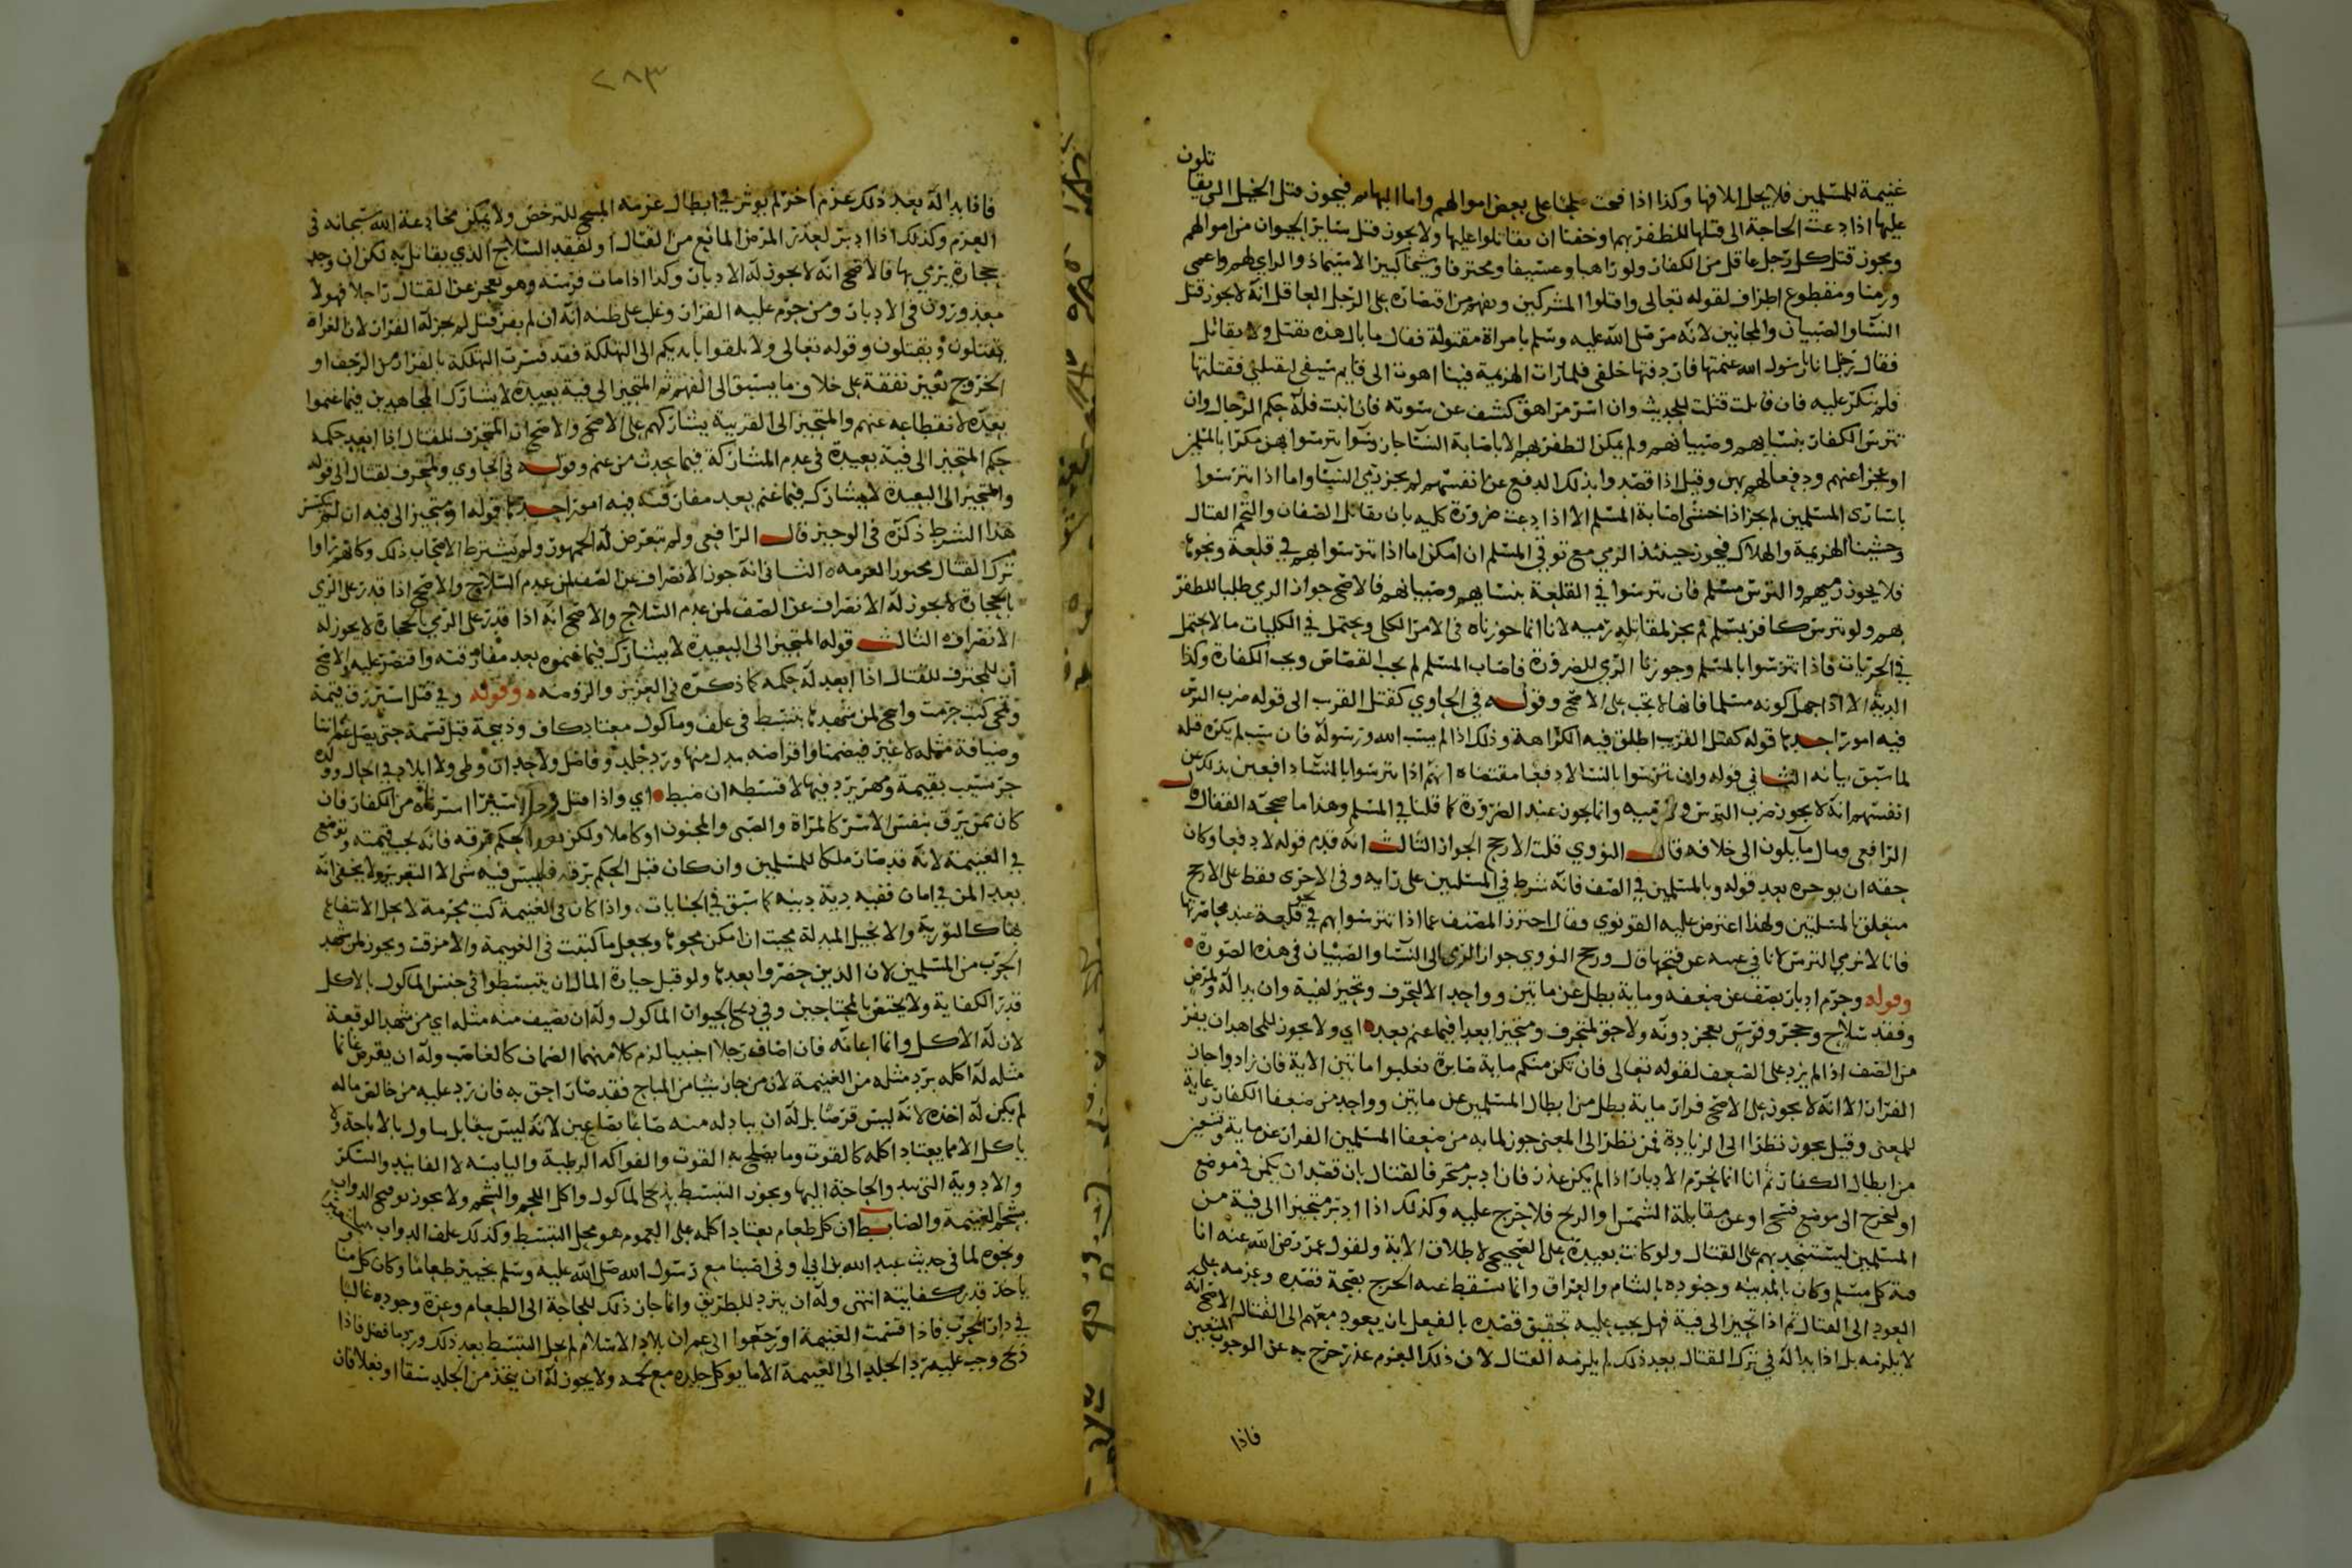 غنيمة للمسلمين فلا يحل اتلافها وكذا اذا فتحت صلحا على بعض اموالهم واما البهائم فيجوز قتل الخيل التي يقاتلون
عليها اذا دعت الحاجة الى قتلها للظفر بهم او خفنا ان يقاتلوا عليها ولا يجوز قتل ساير الحيوان من اموالهم
ويجوز قتل كل رجل عاقل من الكفار ولو راهبا وعسيفا ومحترفا وشيخا كبير الاستنفاذ والراي لهم واعمى
وزمنا ومقطوع اطراف لقوله تعالى واقتلوا المشركين وفهم من اقتصاره على الرجل العاقل انه لا يجوز قتل
النسا والصبيان والمجانين لانه مر صلى الله عليه وسلم بامراة مقتولة فقال ما بال هذه تقتل ولا تقاتل
فقال رجل انا يا رسول الله غنمتها فاردفتها خلفي فلما رات الهزيمة فينا اهوت الى قايم سيفي لتقتلني فقتلتها
فلم ينكر عليه فان قاتلت قتلت للحديث وان اسر مراهق كشف عن سوته فان انبت فله حكم الرجال وان
تترس الكفار بنسايهم وصبيانهم ولم يمكن الظفر بهم الا باصابة النسا جاز وسوا تترسوا بهن مكرا بالمسلمين
او عجزا عنهم ودفعا لهم بهن وقيل اذا قصدوا بذلك الدفع عن انفسهم لم يجز رمي النسا واما اذا تترسوا
باسارى المسلمين لم يجز اذا خشي اصابة المسلم الا اذا دعت ضرورة كلية بان تقابل الصفان والتحم القتال
وخشينا الهزيمة والهلاك فيجوز حينئذ الرمي مع توقي المسلم ان امكن اما اذا تترسوا بهم في قلعة ونحوها
فلا يجوز رميهم والترس مسلم فان تترسوا في القلعة بنسايهم وصبيانهم فالاصح جواز الرمي طلبا للظفر
بهم ولو تترس كافر بمسلم لم يجز لمقاتله رميه لانا انما جوزناه في الامر الكلي ويحتمل في الكليات ما لا يحتمل
في الجزيات فاذا تترسوا بالمسلم وجوزنا الرمي للضرورة فاصاب المسلم لم يجب القصاص ويجب الكفارة وكذا
الدية الا اذا جهل كونه مسلما فانها لا تجب على الاصح وقوله في الحاوي كقتل القريب الى قوله ضرب الترس
فيه امور احدها قوله كقتل القريب اطلق فيه الكراهة وذلك اذا لم يسب الله ورسوله فان سب لم يكره قتله
لما سبق بيانه الثاني قوله وان تترسوا بالنسا لا دفعا مقتضاه انهم اذا تترسوا بالنسا دافعين بذلك عن
انفسهم انه لا يجوز ضرب الترس ورميه وانما يجوز عند الضرورة كما قلنا في المسلم وهذا ما صححه القفال
الرافعي ومال مايلون الى خلافه قال النووي قلت الارجح الجواز الثالث انه قدم قوله لا دفعا وكان
حقه ان يوخره بعد قوله وبالمسلمين في الصف فانه شرط في المسلمين على رايه وفي الاخرى فقط على الارجح
متعلق بالمسلمين ولهذا اعترض عليه القونوي وقال احترز المصنف عما اذا تترسوا بهم في نحو قلعة عند محاصرتها
فانا لا نرمي الترس لانا في غنية عن فتحها قال ورجح النووي جواز الرمي الى النسا والصبيان في هذه الصورة
وقوله وحرم ادبار نصف عن ضعفه وماية بطل عن مايتين وواحد الا لتحرف وتحيز لفية وان بدا له ولمرض
وفقد سلاح وحجر وفرس يعجز دونه ولا حق لمتحرف ومتحيز ابعدا فيما غنم بعده اي ولا يجوز للمجاهد ان يفر
من الصف اذا لم يزد على الضعف لقوله تعالى فان تكن منكم ماية صابرة يغلبوا مايتين الاية فان زادوا جاز
الفرار الا انه لا يجوز على الاصح فرار ماية بطل من ابطال المسلمين عن مايتين وواحد من ضعفا الكفار رعاية
للمعنى وقيل يجوز نظرا الى الزيادة فمن نظر الى المعنى جوز لماية من ضعفا المسلمين الفرار عن ماية وتسعين
من ابطال الكفار ثم انا انما نحرم الادبار اذا لم يكن عذر فان ادبر متحرفا لقتال بان قصد ان يكمن في موضع
او ليخرج الى موضع فسيح او عن مقابلة الشمس والريح فلا حرج عليه وكذلك اذا ادبر متحيزا الى فية من
المسلمين ليستنجد بهم على القتال ولو كانت بعيدة على الصحيح لاطلاق الاية ولقول عمر رضي الله عنه انا
فئة كل مسلم وكان بالمدينة وجنوده بالشام والعراق وانما يسقط عنه الحرج بصحة قصده وعزمه على
العود الى القتال ثم اذا تحيز الى فية فهل يجب عليه تحقيق قصده بالفعل بان يعود معهم الى القتال الاصح انه
لا يلزمه بل اذا بدا له في ترك القتال بعد ذلك لم يلزمه القتال لان ذلك العزم عذر خرج به عن الوجوب المتعين
فاذا
٢٨٣
فاذا بدا له بعد ذلك عزم اخر لم يوثر في ابطال عزمه المبيح للترخص ولا يمكن مخادعة الله سبحانه في
العزم وكذلك اذا ادبر لعذر المرض المانع من القتال او لفقد السلاح الذي يقاتل به لكن ان وجد
حجارة يرمي بها فالاصح انه لا يجوز له الادبار وكذا اذا مات فرسه وهو يعجز عن القتال راجلا فهولا
معذورون في الادبار ومن حرم عليه الفرار وغلب على ظنه انه ان لم يفر قتل لم يجز له الفرار لان الغزاة
يقتلون ويقتلون وقوله تعالى ولا تلقوا بايديكم الى التهلكة فقد فسرت التهلكة بالفرار من الزحف او
الخروج بغير نفقة على خلاف ما يسبق الى الفهم ثم المتحيز الى فية بعيدة لا يشارك المجاهدين فيما غنموا
بعده لانقطاعه عنهم والمتحيز الى القريبة يشاركهم على الاصح والاصح ان المتحرف للقتال اذا ابعد حكمه
حكم المتحيز الى فية بعيدة في عدم المشاركة فيما يحدث من غنم وقوله في الحاوي ولمتحرف لقتال الى قوله
والمتحيز الى البعيدة لا يشارك فيما غنم بعد مفارقته فيه امور احدها قوله او متحيز الى فيه ان لم
هذا الشرط ذكره في الوجيز قال الرافعي ولم يتعرض له الجمهور ولم يشترط الاصحاب ذلك وكانهم راوا
ترك القتال الثاني انه جوز الانصراف عن الصف لمن عدم السلاح والاصح اذا قدر على الرمي
بالحجارة لا يجوز له الانصراف عن الصف لمن عدم السلاح والاصح انه اذا قدر على الرمي بالحجارة لا يجوز له
الانصراف الثالث قوله المتحيز الى البعيدة لا يشارك فيما غنموه بعد مفارقته واقتصر عليه والاصح
ان المتحرف للقتال اذا ابعد له حكمه كما ذكره في العزيز والروضة وقوله وفي قتل اسير رق قيمة
وتمحى كتب حرمت واصح لمن شهدها تبسط في علف وماكول معتاد كاف وذبيحة قبل قسمة حتى يصل عمراننا
وضيافة مثله لا غير فيضمنا واقراضه بدل منها ورد جلد وفاضل ولا حد ان وطي ولا ايلاد في الحال وولده
حر نسيب بقيمة ومهر يرد فيها لا قسطه ان ضبط اي واذا قتل رجل اسيرا استرقاه من الكفار فان
كان ممن يرق بنفس الاسر كالمراة والصبي والمجنون او كاملا ولكن بعد الحكم برقه فانه يجب قيمته وتوضع
في الغنيمة لانه قد صار ملكا للمسلمين وان كان قبل الحكم برقه فليس فيه شي الا التعزير ولا يخفى انه
بعد المن في امان ففيه دية دينه كما سبق في الجنايات واذا كان في الغنيمة كتب محرمة لا يحل الانتفاع
بها كالتورية والانجيل المبدلة محيت ان امكن محوها ويجعل ما كتبت في الغنيمة والا مزقت ويجوز لمن شهد
الحرب من المسلمين لان الذين حضروا بعدها ولو قبل حيازة المال ان يتبسطوا في جنس الماكول بالاكل
قدر الكفاية ولا يختص بالمحتاجين وفي ذبح الحيوان الماكول وله ان يضيف منه مثله اي من شهد الوقعة
لان له الاكل وانما اعانه فان اضاف رجلا اجنبيا لزم كلا منهما الضمان كالغاصب وله ان يقرض غانما
مثله له اكله برد مثله من الغنيمة لان من حاز شيا من المباح فقد صار احق به فان رد عليه من خالص ماله
لم يكن له اخذه لانه ليس قرضا بل له ان يبادله منه صاعا بصاعين لانه ليس بيعا بل يتناول بالاباحة ولا
ياكل الا ما يعتاد اكله كالقوت وما يصلح به القوت والفواكه الرطبة واليابسة لا الفانيد والسكر
والادوية التي والحاجة اليها ويجوز التبسط بذبح الماكول واكل اللحم والشحم ولا يجوز توقيح الدواب
بشحم الغنيمة والضابط ان كل طعام يعتاد اكله على العموم هو محل التبسط وكذلك علف الدواب
ونحوه لما في حديث عبد الله بن ابي اوفى اصبنا مع رسول الله صلى الله عليه وسلم بخيبر طعاما وكان كل منا
ياخذ قدر كفايته انتهى وله ان يتزود للطريق وانما جاز ذلك للحاجة الى الطعام وعزة وجوده غالبا
في دار الحرب فاذا قسمت الغنيمة او رجعوا الى عمران بلاد الاسلام لم يحل التبسط بعد ذلك ورد ما فضل فاذا
ذبح وجب عليه رد الجلد الى الغنيمة الا ما يوكل جلده مع لحمه ولا يجوز له ان يتخذ من الجلد سقا او نعلا فان